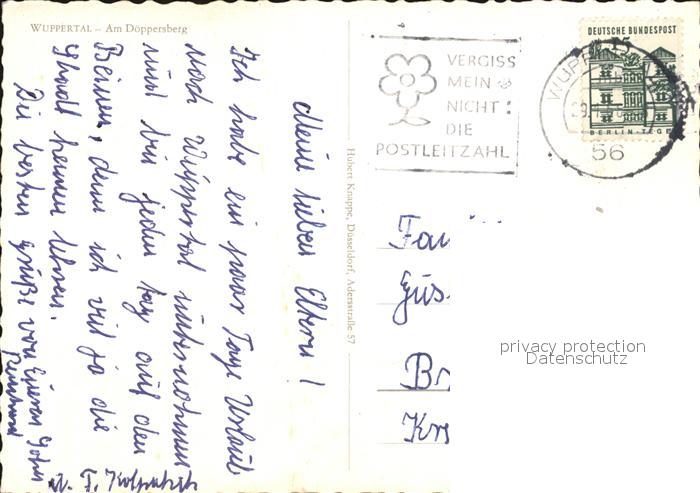 WUPPERTAL – Am Döppersberg
Meine lieben Eltern!
Ich habe ein paar Tage Urlaub
nach Wuppertal unternommen
und bin jeden Tag auf den
Beinen, denn ich will ja die
Stadt kennen lernen.
Die besten Grüße von Eurem Sohn
Hubert Knappe, Düsseldorf, Adersstraße 57
VERGISS
MEIN
NICHT:
DIE
POSTLEITZAHL
WUPPER
56
DEUTSCHE BUNDESPOST
15
BERLIN-TEGEL
Fa
Gus
Br
Kr
privacy protection
Datenschutz